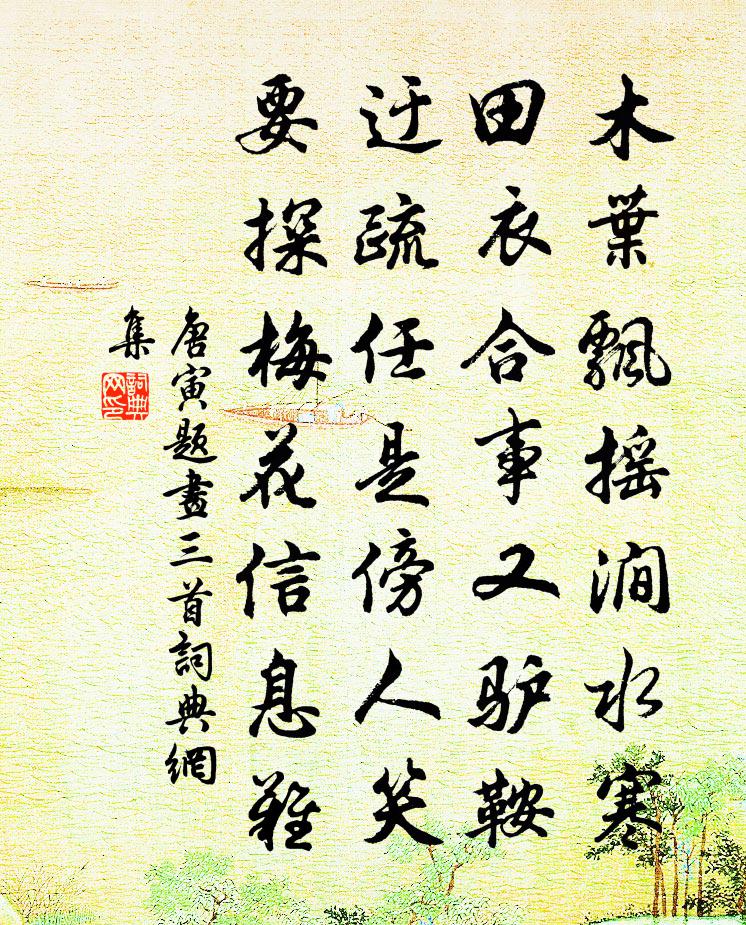 木葉飄摇澗水寒
田衣合事又驴鞍
迂疏任是傍人笑
要探梅花信息難
唐寅题畫三首詞典網
集
詞典网印